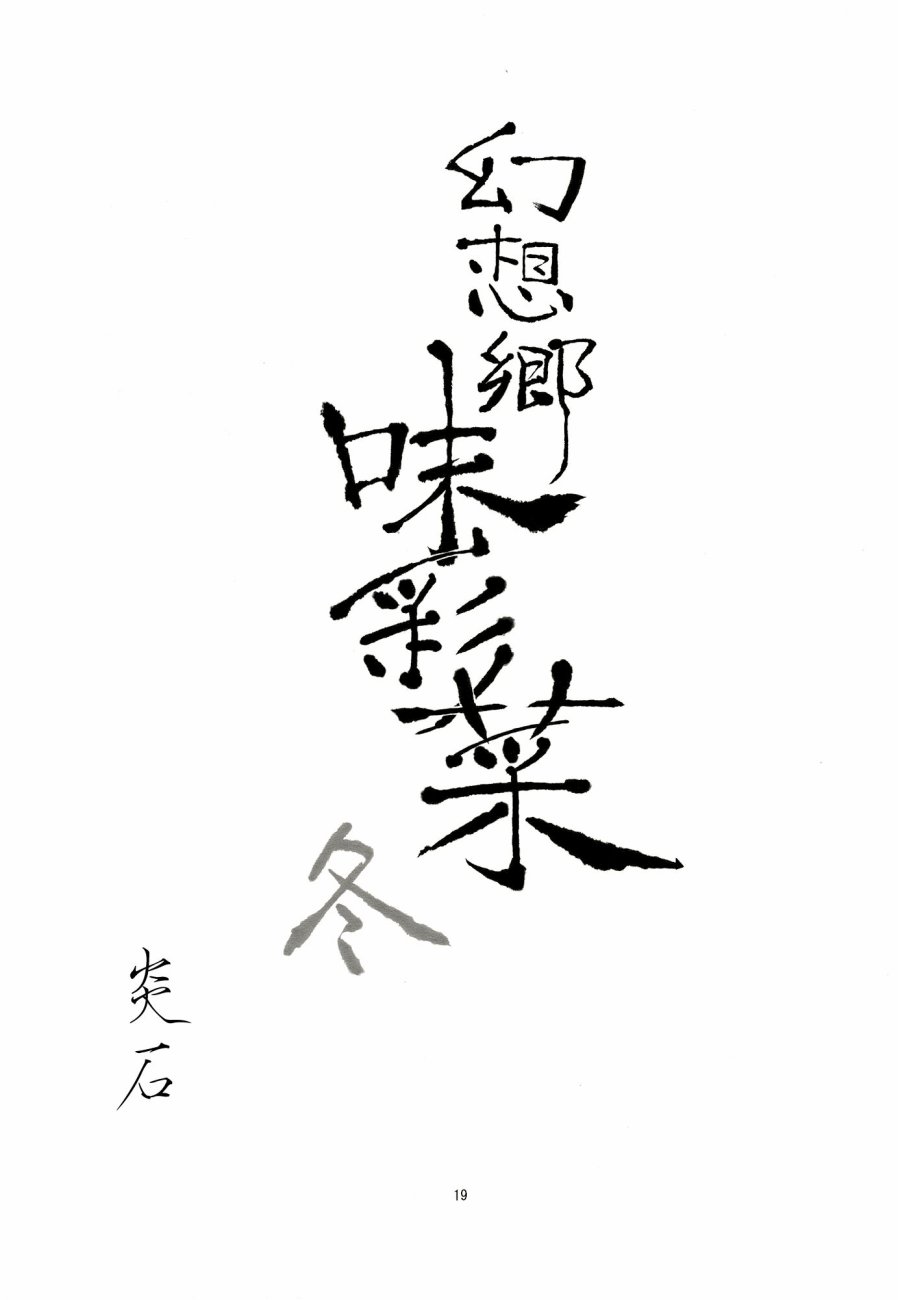 幻想郷
味彩菜
冬
炎石
19